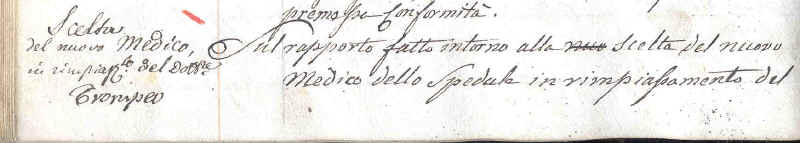 premesse Conformità.
Scelta
del nuovo Medico,
in rimpiazto. del Dottre
Trompeo
Sul rapporto fatto intorno alla nuo scelta del nuovo
Medico dello Spedale in rimpiassamento del